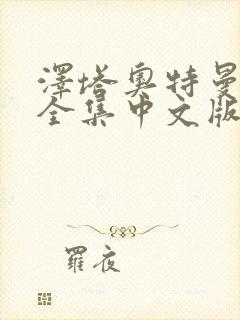 澤塔奧特曼
全集中文版
羅夜